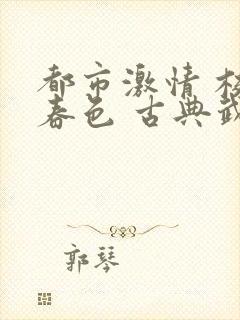 都市激情 校
春色 古典武
郭琴